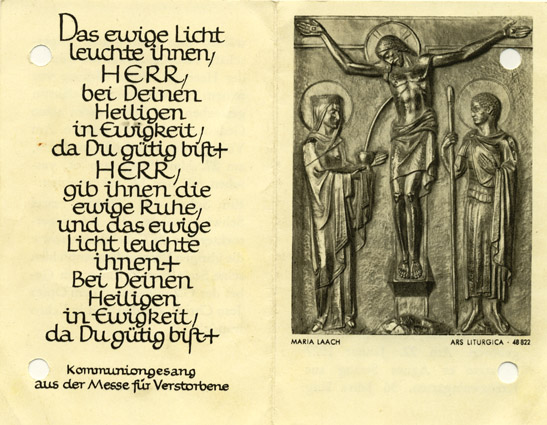 Das ewige Licht
leuchte ihnen,
HERR,
bei Deinen
Heiligen
in Ewigkeit,
da Du gütig bist+
HERR,
gib ihnen die
ewige Ruhe,
und das ewige
Licht leuchte
ihnen+
Bei Deinen
Heiligen
in Ewigkeit,
da Du gütig bist+
Kommuniongesang
aus der Messe für Verstorbene
MARIA LAACH
ARS LITURGICA · 48 822